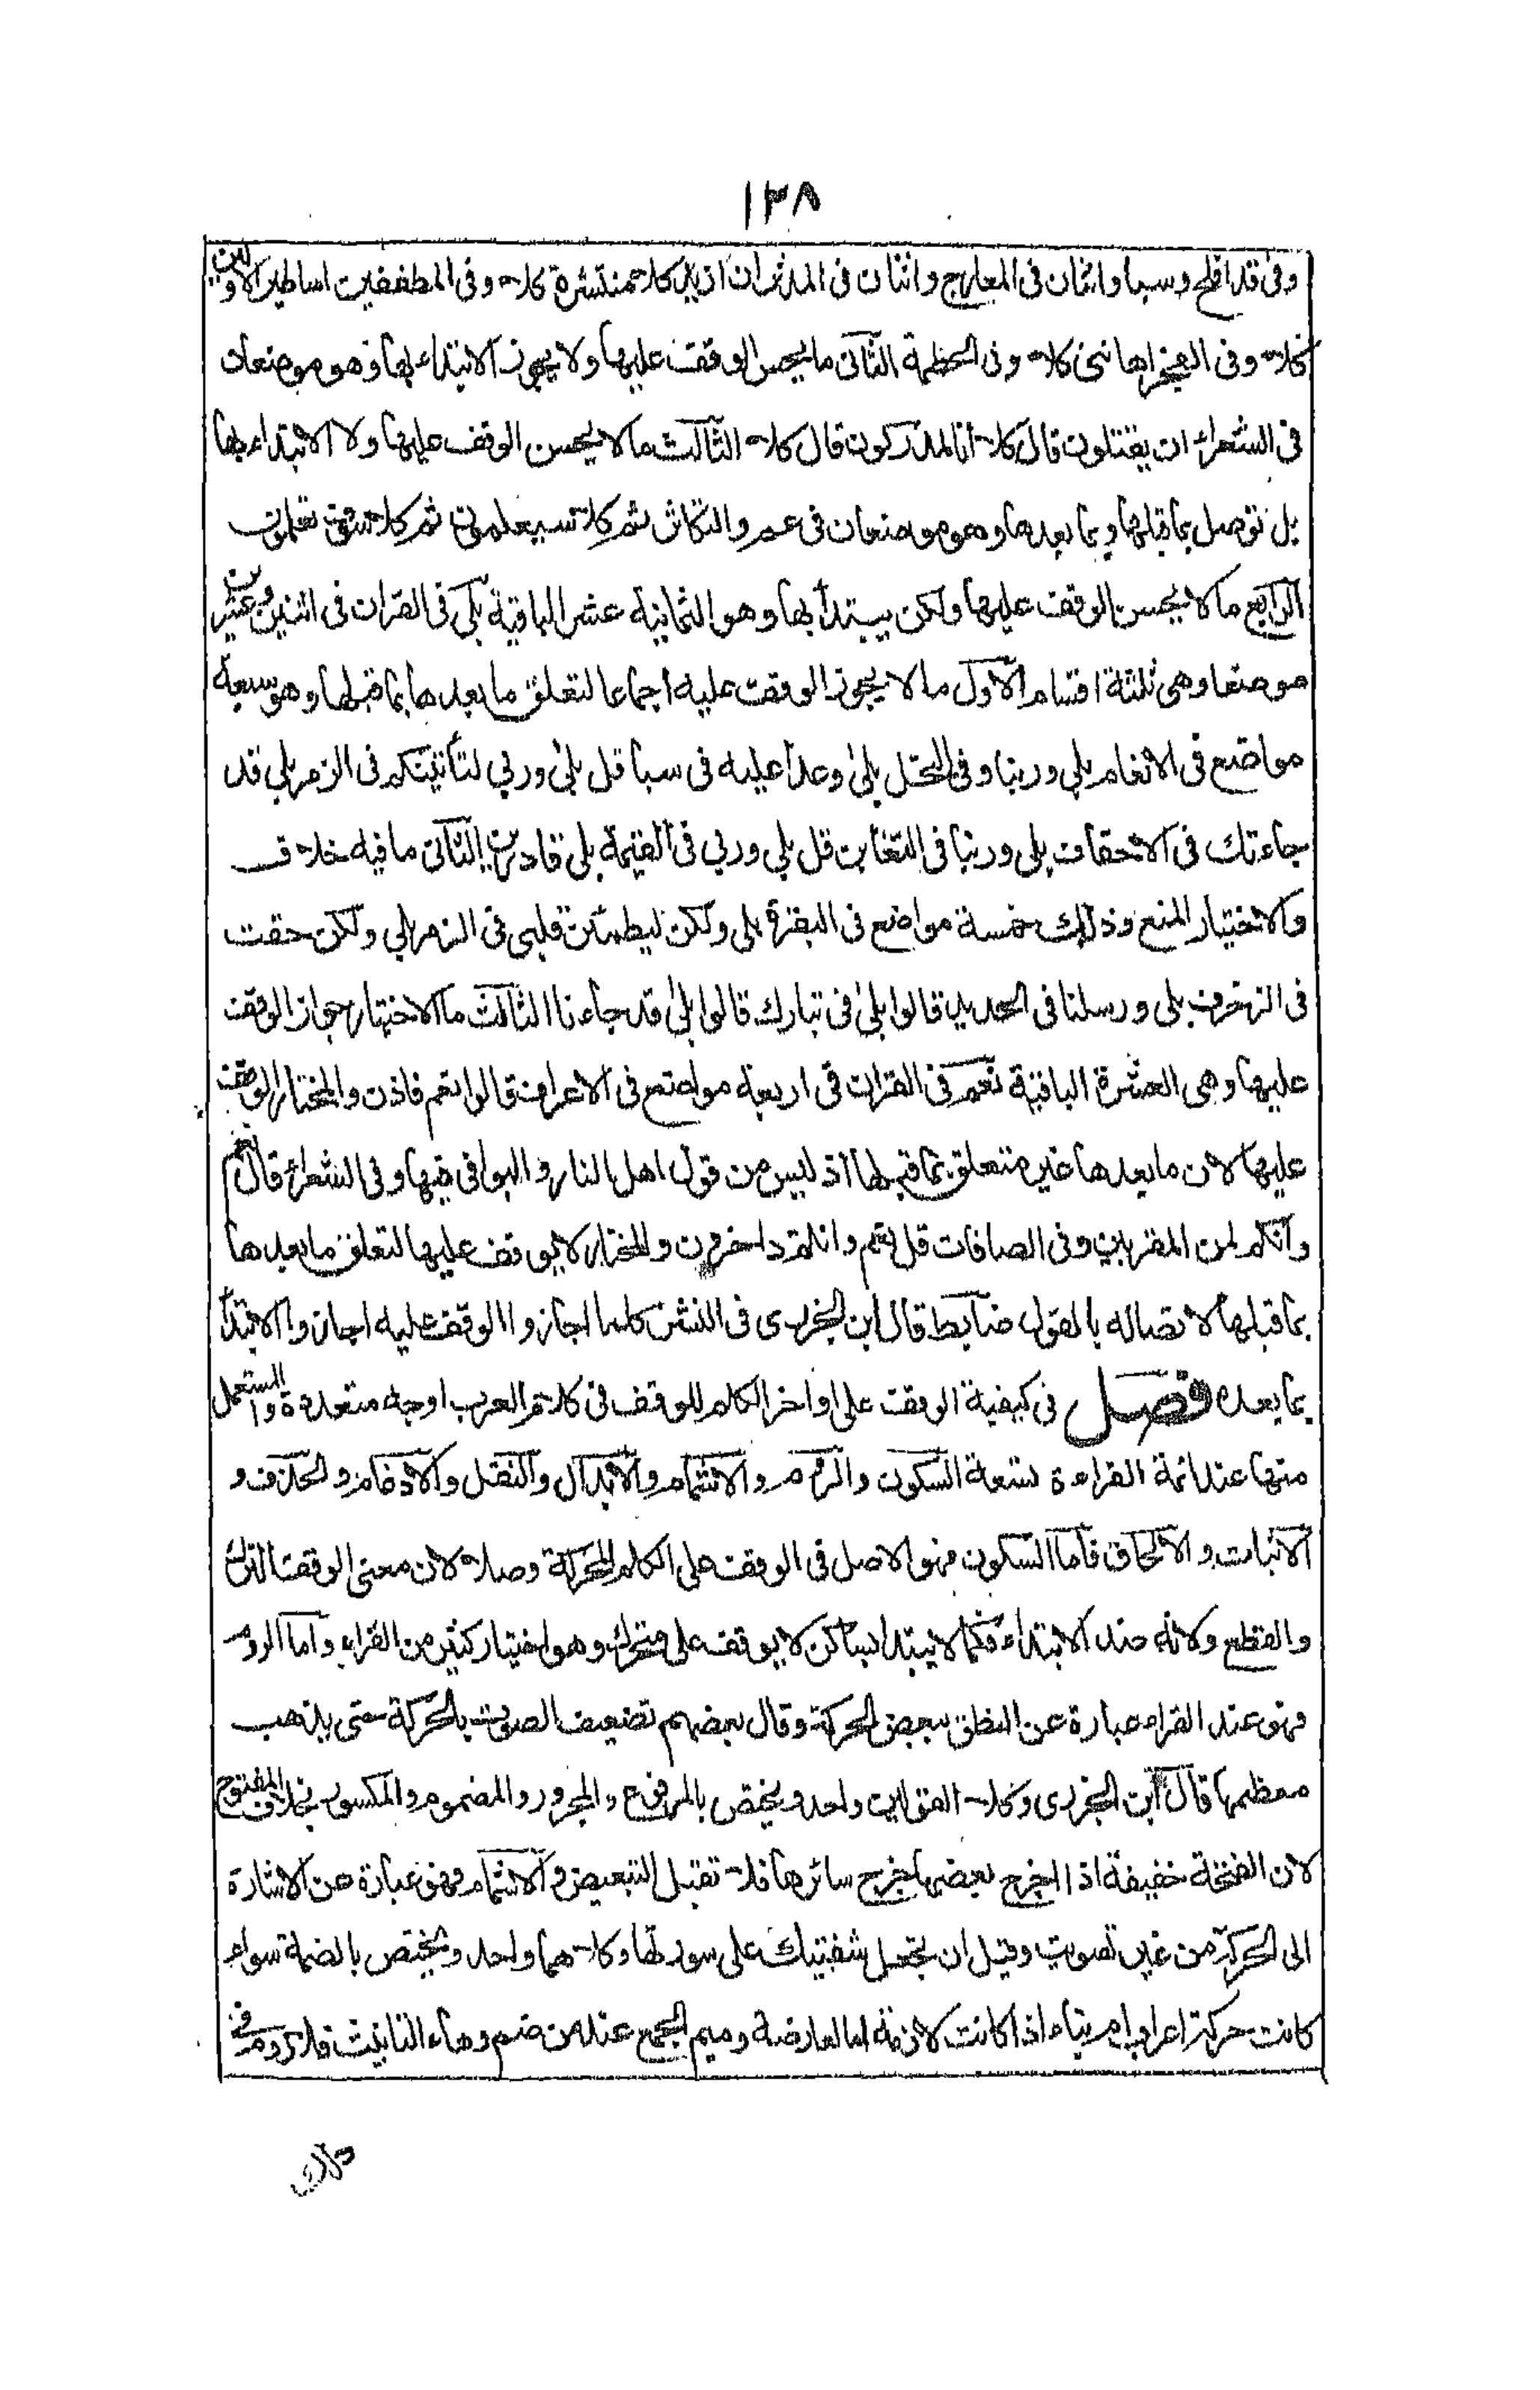 ١٣٨
وفى قد افلح وسبا واثنان فى المعارج واثنان فى المدثر ان ازيد كلا منتشرة كلا وفى المطففين اساطير الاولين
كلا وفى الفجر اهانن كلا وفى الحطمة الثانى ما يحسن الوقف عليها ولا يجوز الابتداء بها وهو موضعان
فى الشعراء ان يقتلون قال كلا انا لمدركون قال كلا الثالث ما لا يحسن الوقف عليها ولا الابتداء بها
بل توصل بما قبلها وبما بعدها وهو موضعان فى عم والتكاثر ثم كلا سيعلمون ثم كلا سوف تعلمون
الرابع ما لا يحسن الوقف عليها ولكن يبتدأ بها وهو الثمانية عشر الباقية بلى فى القران فى اثنين وعشرين
موضعا وهى ثلثة اقسام الاول ما لا يجوز الوقف عليه اجماعا لتعلق ما بعدها بما قبلها وهو سبعة
مواضع فى الانعام بلى وربنا وفى النحل بلى وعدا عليه فى سبا قل بلى وربي لتأتينكم فى الزمر بلى قد
جاءتك فى الاحقاف بلى وربنا فى التغابن قل بلى وربي فى القيمة بلى قادرين الثانى ما فيه خلاف
والاختيار المنع وذلك خمسة مواضع فى البقرة بلى ولكن ليطمئن قلبى فى الزمر بلى ولكن حقت
فى الزخرف بلى ورسلنا فى الحديد قالوا بلى فى تبارك قالوا بلى قد جاءنا الثالث ما الاختيار جواز الوقف
عليها وهى العشرة الباقية نعم فى القران فى اربعة مواضع فى الاعراف قالوا نعم فاذن والمختار الوقف
عليها لان ما بعدها غير متعلق بما قبلها اذ ليس من قول اهل النار والبواقى فيها وفى الشعراء قال نعم
وانكم لمن المقربين وفى الصافات قل نعم وانتم داخرون والمختار لا يوقف عليها لتعلق ما بعدها
بما قبلها لاتصاله بالقول ضابط قال ابن الجزرى فى النشر كلما اجازوا الوقف عليه اجازوا الابتدأ
بما بعده فصل فى كيفية الوقف على اواخر الكلم للوقف فى كلام العرب اوجه متعددة والمستعمل
منها عند ائمة القراءة تسعة السكون والروم والاشمام والابدال والنقل والادغام والحذف و
الاثبات والالحاق فاما السكون فهو الاصل فى الوقف على الكلم المحركة وصلا لان معنى الوقف الترك
والقطع ولانه ضد الابتداء فكما لا يبتدا بساكن لا يوقف على متحرك وهو اختيار كثير من القراء واما الروم
فهو عند القراء عبارة عن النطق ببعض الحركة وقال بعضهم تضعيف الصوت بالحركة حتى يذهب
معظمها قال ابن الجزرى وكلا القولين واحد ويختص بالمرفوع والمجرور والمضموم والمكسور بخلاف المفتوح
لان الفتحة خفيفة اذا اخرج بعضها خرج سائرها فلا تقبل التبعيض والاشمام فهو عبارة عن الاشارة
الى الحركة من غير تصويت وقيل ان تجعل شفتيك على صورتها وكلاهما واحد ويختص بالضمة سواء
كانت حركة اعراب ام بناء اذا كانت لازمة اما العارضة وميم الجمع عند من ضم وهاء التانيث فلا روم فى